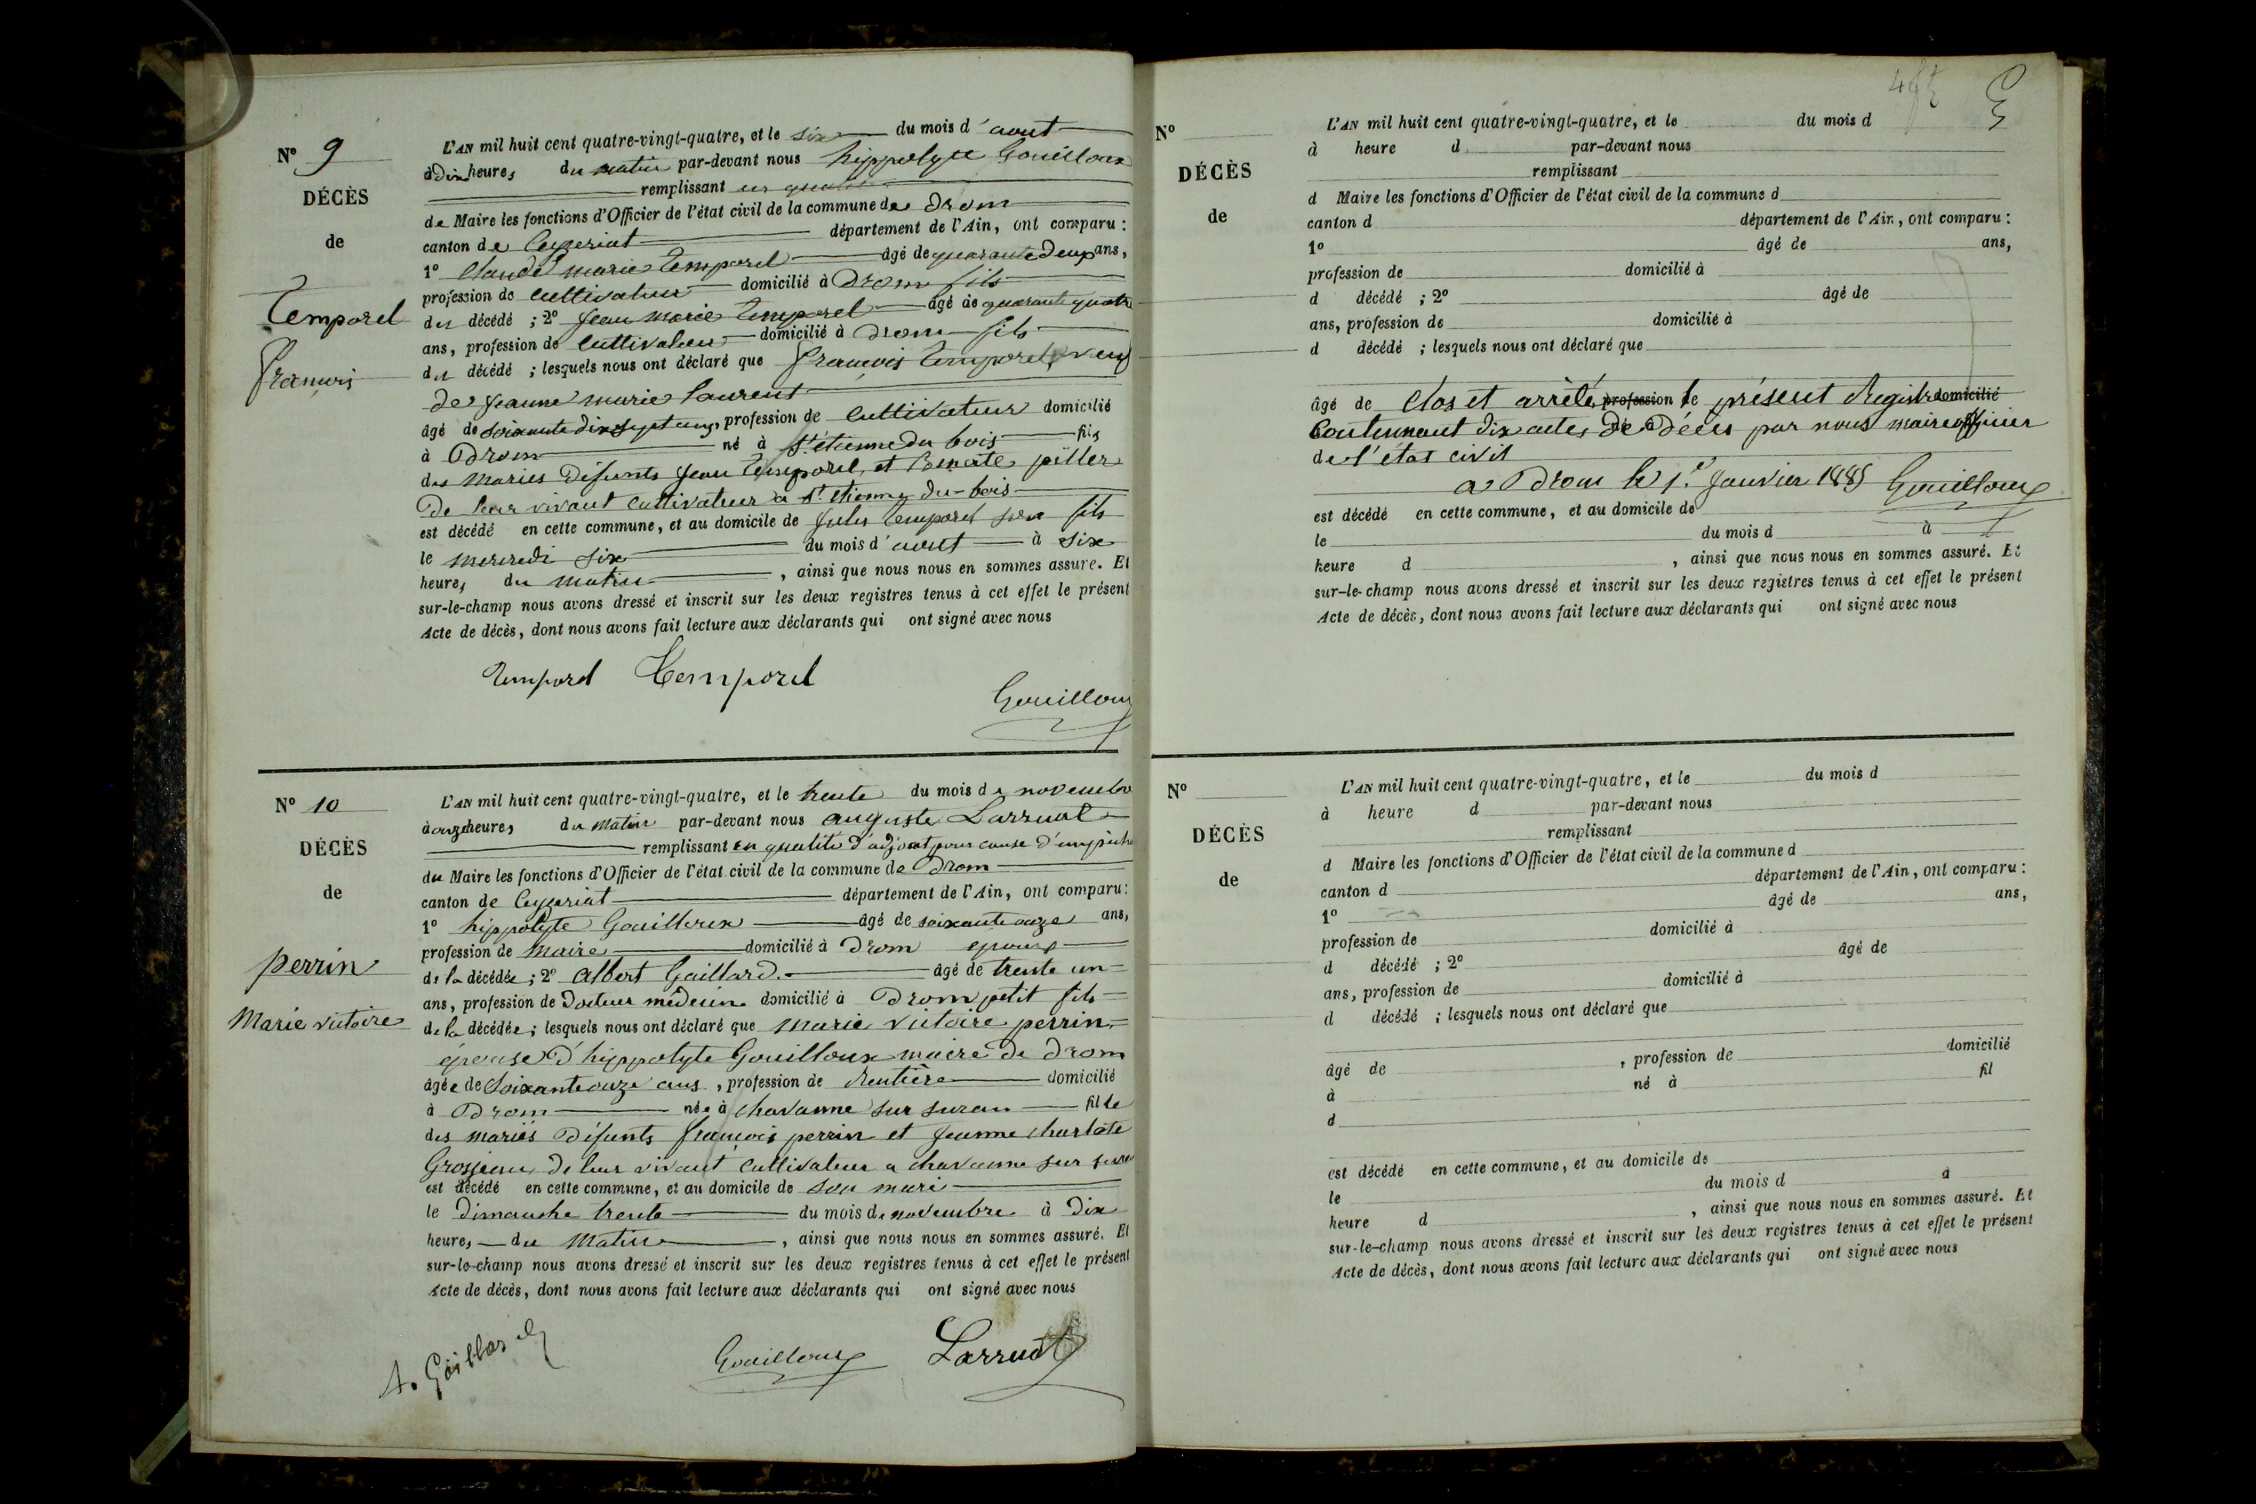 N° 9
DÉCÈS
de
Temporel
François
L'AN mil huit cent quatre-vingt-quatre, et le six du mois d'aout
à Dix heures du matin par-devant nous hippolyte Gouilloux
remplissant en qualité
de Maire les fonctions d'Officier de l'état civil de la commune de Drom
canton de Ceyzeriat département de l'Ain, ont comparu :
1° Claude marie Temporel âgé de quarante deux ans,
profession de cultivateur domicilié à Drom fils
du décédé ; 2° Jean marie Temporel âgé de quarante quatre
ans, profession de cultivateur domicilié à Drom fils
du décédé ; lesquels nous ont déclaré que François Temporel, veuf
de Jeanne marie Laurent
âgé de soixante dix sept ans, profession de cultivateur domicilié
à Drom né à St étienne du bois fils
des mariés Défunts Jean Temporel et Benoite piller
De leur vivant cultivateur a St etienne du-bois
est décédé en cette commune, et au domicile de Jules Temporel son fils
le mercredi six du mois d'aout à six
heures du matin, ainsi que nous nous en sommes assuré. Et
sur-le-champ nous avons dressé et inscrit sur les deux registres tenus à cet effet le présent
Acte de décès, dont nous avons fait lecture aux déclarants qui ont signé avec nous
Temporel Temporel
Gouilloux
N° 10
DÉCÈS
de
perrin
Marie victoire
L'AN mil huit cent quatre-vingt-quatre, et le trente du mois de novembre
à onze heures du matin par-devant nous auguste Larruat
remplissant en qualité d'adjoint pour cause d'
du Maire les fonctions d'Officier de l'état civil de la commune de Drom
canton de Ceyzeriat département de l'Ain, ont comparu :
1° hippolyte Gouilloux âgé de soixante onze ans,
profession de maire domicilié à Drom epoux
de la décédée ; 2° Albert Gaillard. âgé de trente un
ans, profession de Docteur médecin domicilié à Drom petit fils
de la décédée ; lesquels nous ont déclaré que Marie victoire perrin,
épouse d'hippolyte Gouilloux maire de Drom
âgée de soixante onze ans, profession de Rentière domicilié
à Drom née à chavanne sur suran fille
des mariés Défunts françois perrin et Jeanne charlote
Grosjean de leur vivant cultivateur a chavanne sur suran
est décédé en cette commune, et au domicile de son mari
le Dimanche trente du mois de novembre à Dix
heures du Matin, ainsi que nous nous en sommes assuré. Et
sur-le-champ nous avons dressé et inscrit sur les deux registres tenus à cet effet le présent
Acte de décès, dont nous avons fait lecture aux déclarants qui ont signé avec nous
A. Gaillard Gouilloux Larruat
N°
DÉCÈS
de
L'AN mil huit cent quatre-vingt-quatre, et le du mois d
à heure d par-devant nous
remplissant
d Maire les fonctions d'Officier de l'état civil de la commune d
canton d département de l'Ain, ont comparu :
1° âgé de ans,
profession de domicilié à
d décédé ; 2° âgé de
ans, profession de domicilié à
d décédé ; lesquels nous ont déclaré que
âgé de Clos et arrêté, profession le présent Registre domicilié
Contennant dix actes de Décès par nous maire officier
de l'état civil
a Drom le 1er Janvier 1885 Gouilloux
est décédé en cette commune, et au domicile de
le du mois d à
heure d , ainsi que nous nous en sommes assuré. Et
sur-le-champ nous avons dressé et inscrit sur les deux registres tenus à cet effet le présent
Acte de décès, dont nous avons fait lecture aux déclarants qui ont signé avec nous
N°
DÉCÈS
de
L'AN mil huit cent quatre-vingt-quatre, et le du mois d
à heure d par-devant nous
remplissant
d Maire les fonctions d'Officier de l'état civil de la commune d
canton d département de l'Ain, ont comparu :
1° âgé de ans,
profession de domicilié à
d décédé ; 2° âgé de
ans, profession de domicilié à
d décédé ; lesquels nous ont déclaré que
âgé de , profession de domicilié
à né à fil
d
est décédé en cette commune, et au domicile de
le du mois d à
heure d , ainsi que nous nous en sommes assuré. Et
sur-le-champ nous avons dressé et inscrit sur les deux registres tenus à cet effet le présent
Acte de décès, dont nous avons fait lecture aux déclarants qui ont signé avec nous